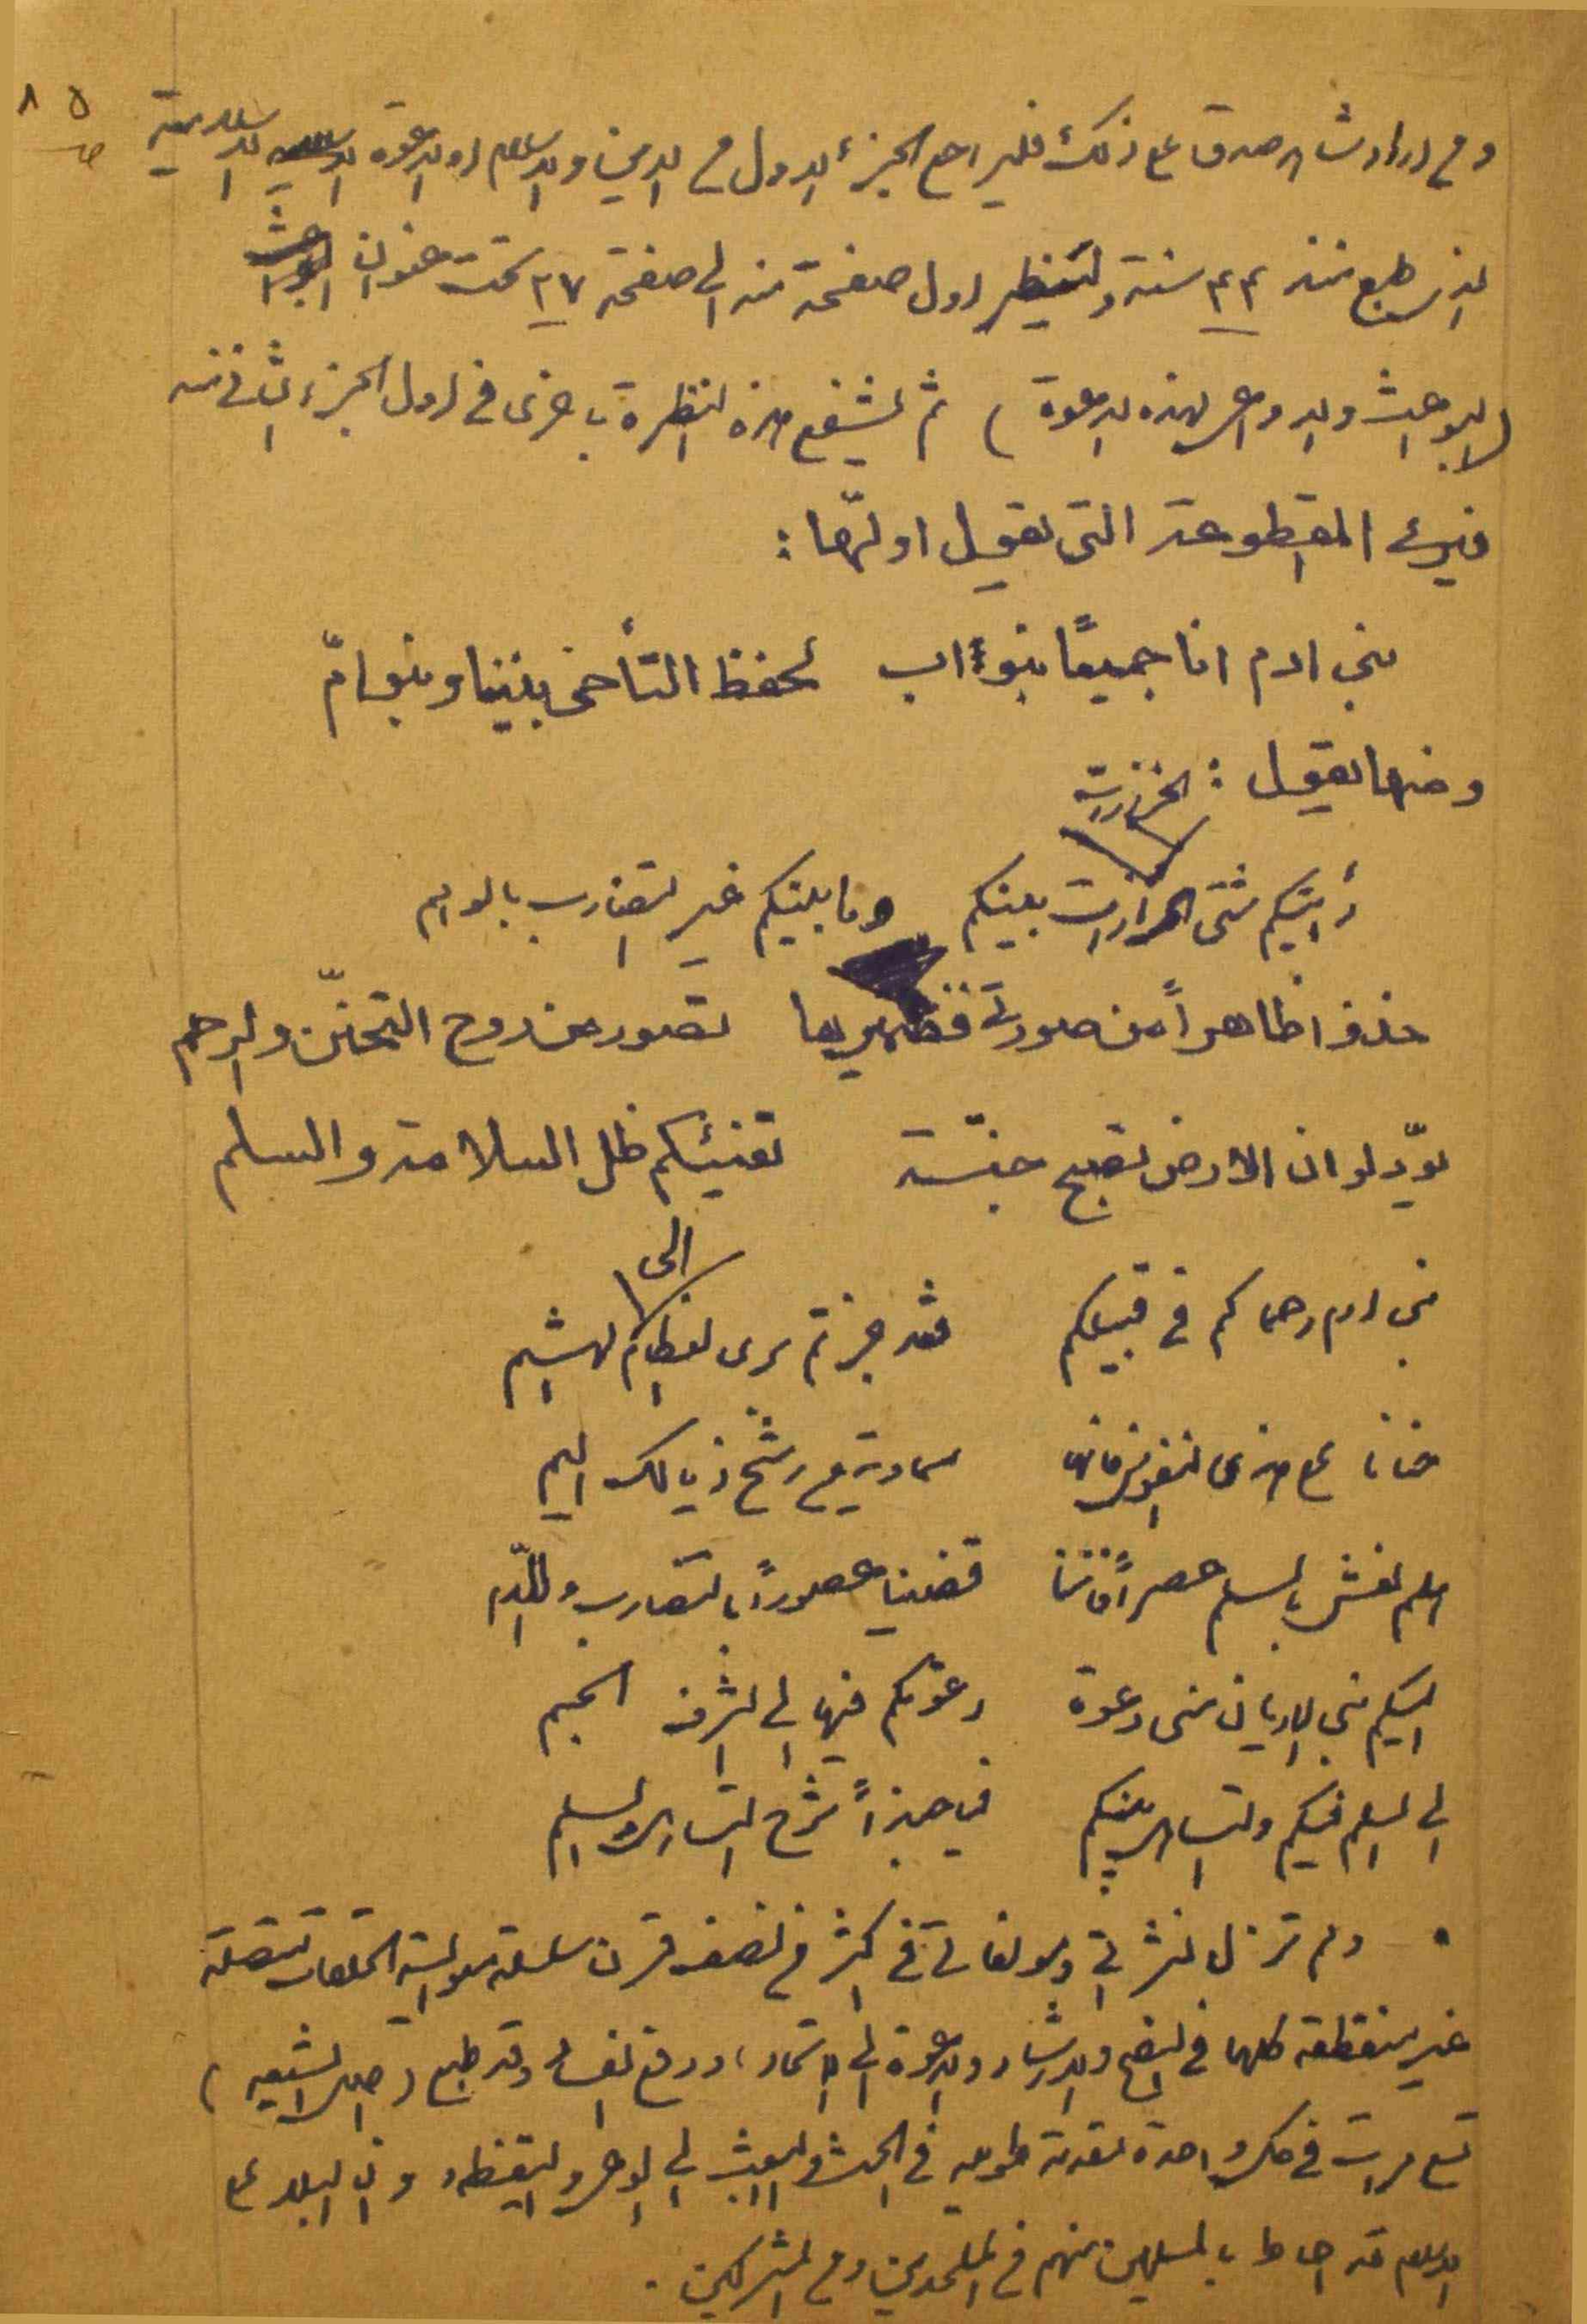 ٨٥
ص
ومن اراد شاهد صدق على ذلك فليراجع الجزء الاول من الدين والاسلام او الدعوة الاسلامية
الذي طبع منذ ٤٣ سنة ولينظر اول صفحة منه الى صفحة ٢٧ تحت عنوان
(البواعث والدواعي لهذه الدعوة) ثم ليشفع هذه النظرة باخرى في اول الجزء الثاني منه
فيرى المقطوعة التي يقول اولها :
بني ادم انا جميعًا بنو اب لحفظ التأخي بيننا وبنو امّ
ومنها يقول :
الحزازات
رأيتكم شتى الحزازات بينكم وما بينكم غير التضارب بالوهم
خذوا ظاهراً من صورتي فضميرها تصور من روح التحنّن والرحم
يودّ لو ان الارض تصبح جنّة تفيئكم ظل السلامة والسلم
الى
بني ادم رحماكم في قبيلكم فقد جزتم برى العظام الهشم
حنانا على هذي النفوس فانها سماوية من رشح ذيالك اليم
هلم نعش بالسلم عصراً فاننا قضينا عصوراً بالتضارب واللدم
اليكم بني الاديان مني دعوة دعوتكم فيها الى الشرف الجم
الى السلم فيكم والتساهل بينكم فيا حبذاً شرع التساهل والسلم
• ولم تزل نشراتي ومؤلفاتي في اكثر من نصف قرن سلسلة متوالية الحلقات متصلة
غير منقطعة كلها في النصح والارشاد والدعوة الى الاتحاد ، ودفع الفساد وقد طبع (اصل الشيعة)
تسع مرات في كل واحدة مقدمة طويلة في الحث والبعث الى الوعي واليقظة وان البلاء على
الاسلام قد احاط بالمسلمين منهم من الملحدين ومن المشركين .